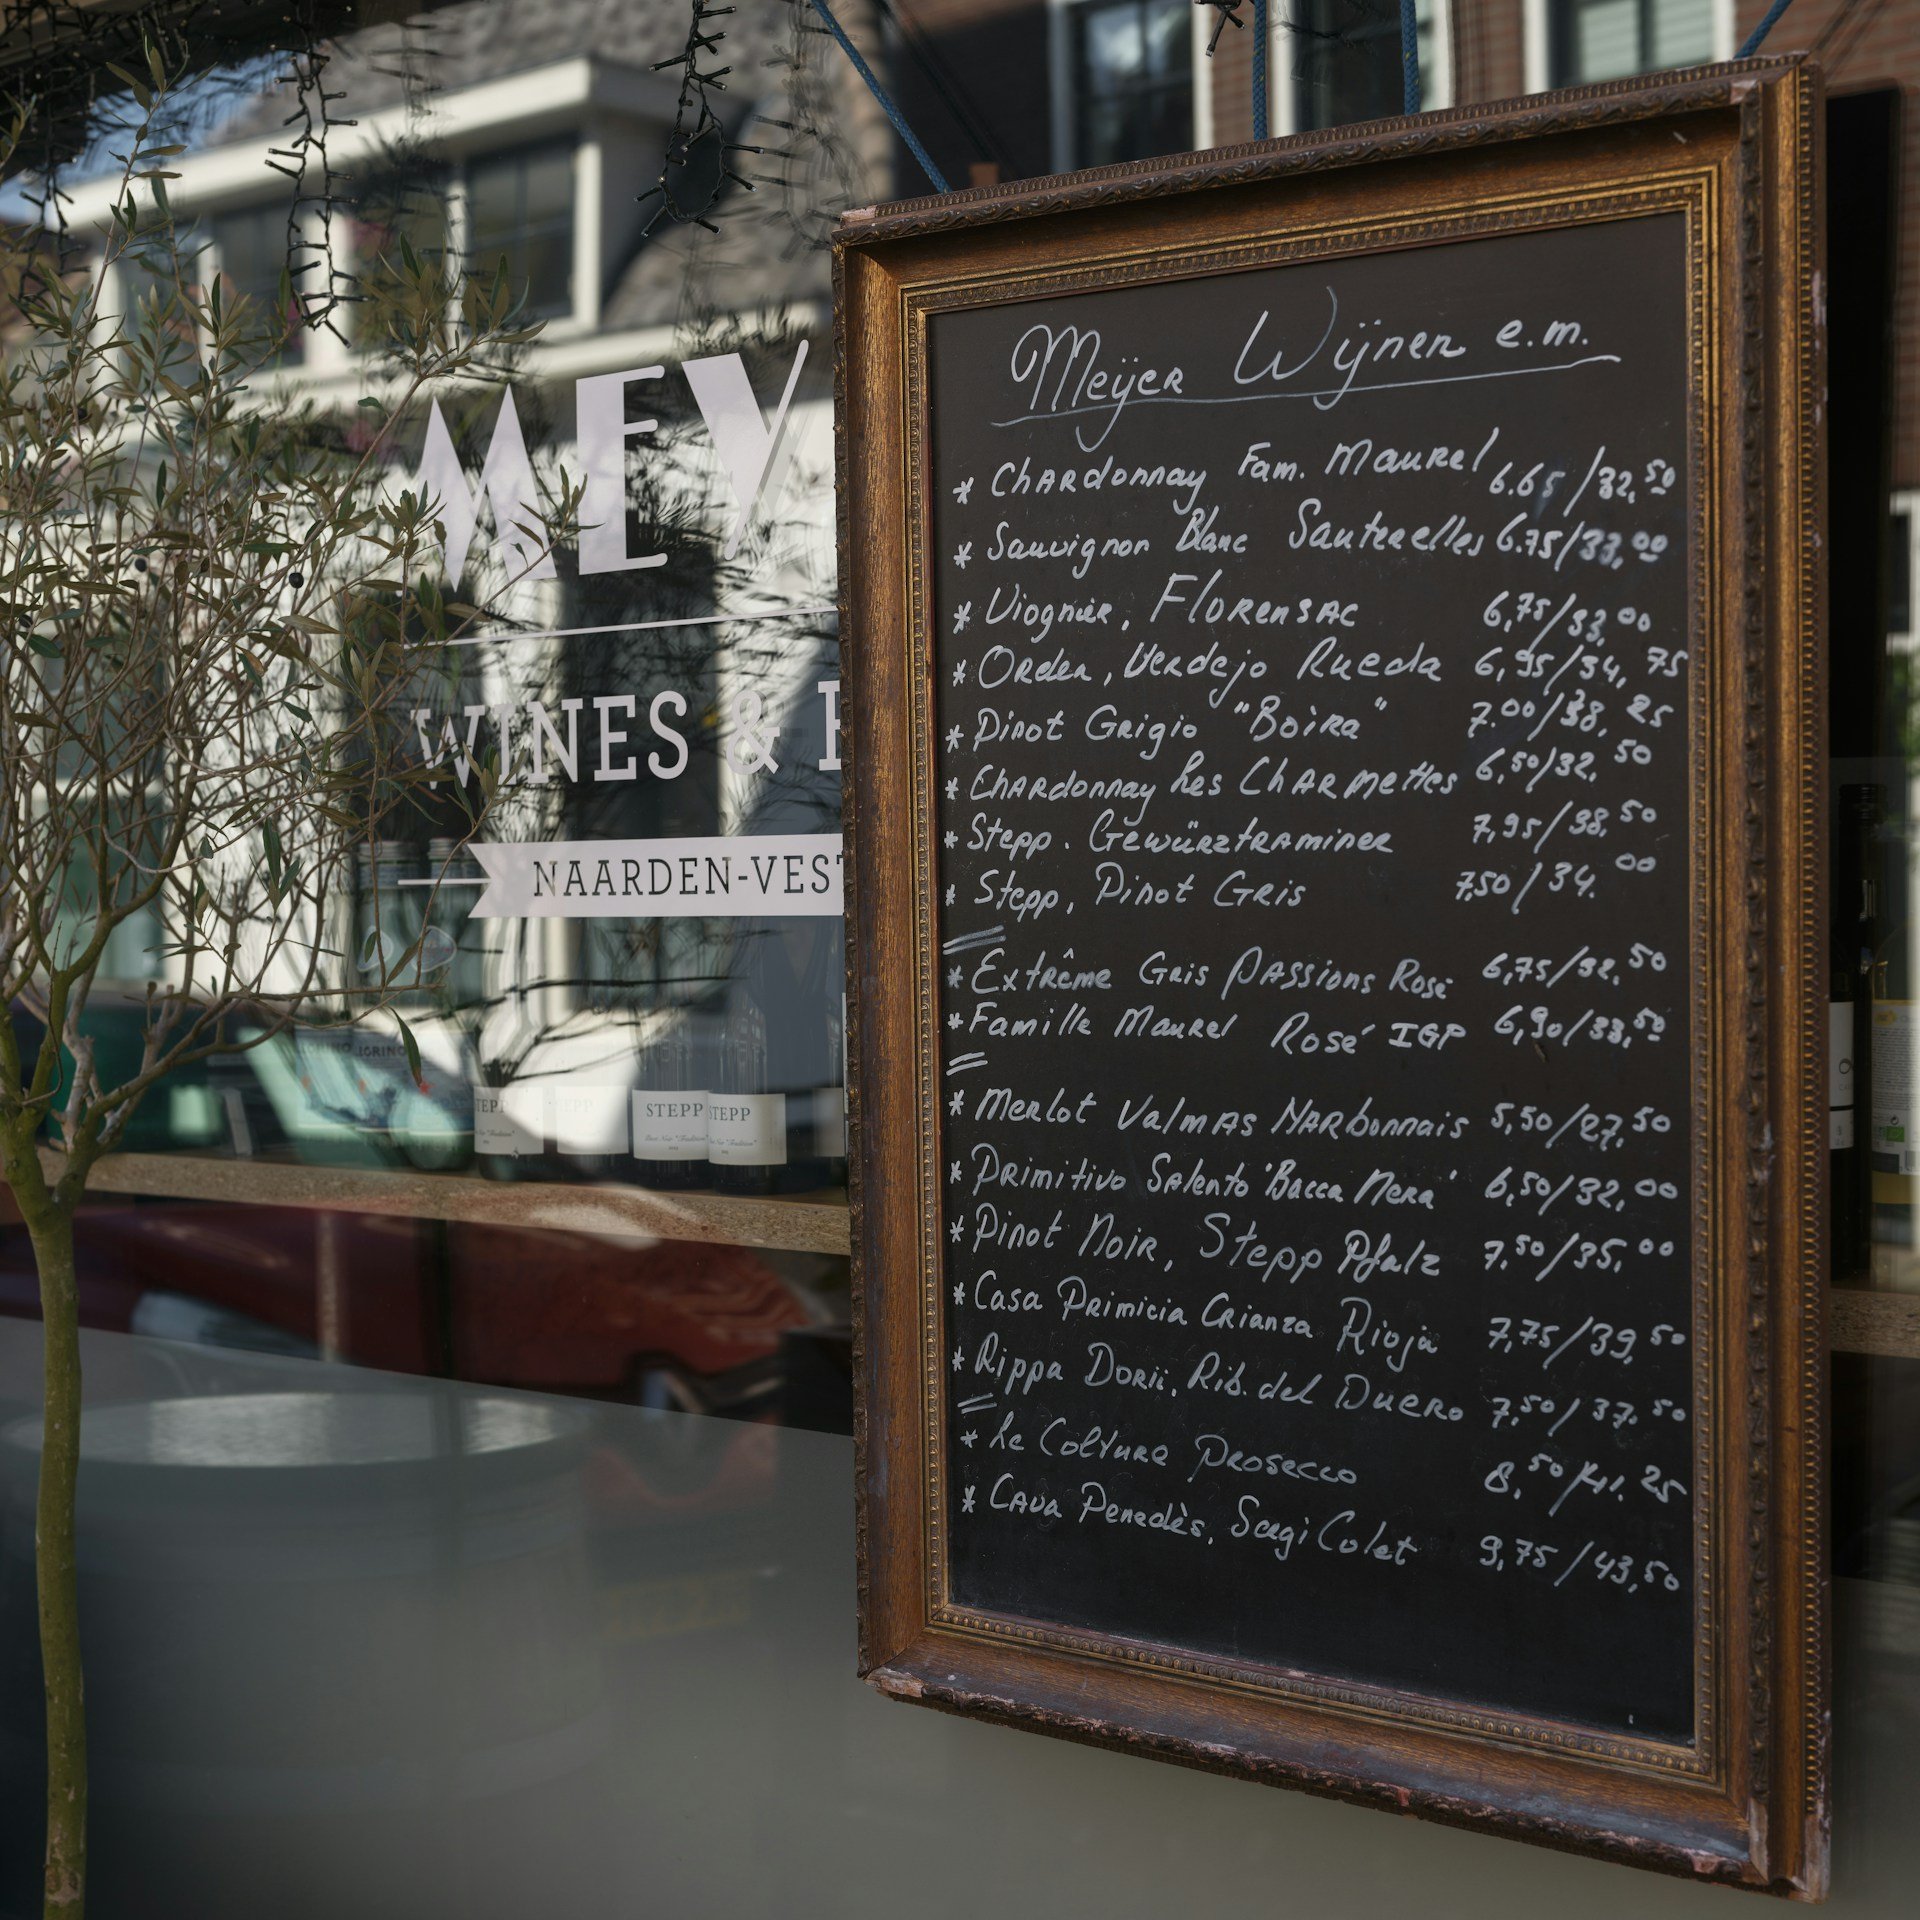 MEY
WINES &
NAARDEN-VEST
STEPP
STEPP
Meijer Wijnen e.m.
* Chardonnay Fam. Maurel 6.65/32,50
* Sauvignon Blanc Sauterelles 6.75/33,00
* Viognier, Florensac 6,75/33,00
* Orden, Verdejo Rueda 6,95/34,75
* Pinot Grigio "Boira" 7.00/38,25
* Chardonnay Les Charmettes 6,50/32,50
* Stepp. Gewürztraminer 7,95/38,50
* Stepp, Pinot Gris 7,50/34.00
* Extrême Gris Passions Rosé 6,75/32,50
* Famille Maurel Rosé IGP 6,90/33,50
* Merlot Valmas Narbonnais 5,50/27,50
* Primitivo Salento 'Bacca Nera' 6,50/32,00
* Pinot Noir, Stepp Pfalz 7,50/35,00
* Casa Primicia Crianza Rioja 7,75/39,50
* Rippa Dorii, Rib. del Duero 7,50/37,50
* Le Colture Prosecco 8,50/41.25
* Cava Penedès, Sergi Colet 9,75/43,50